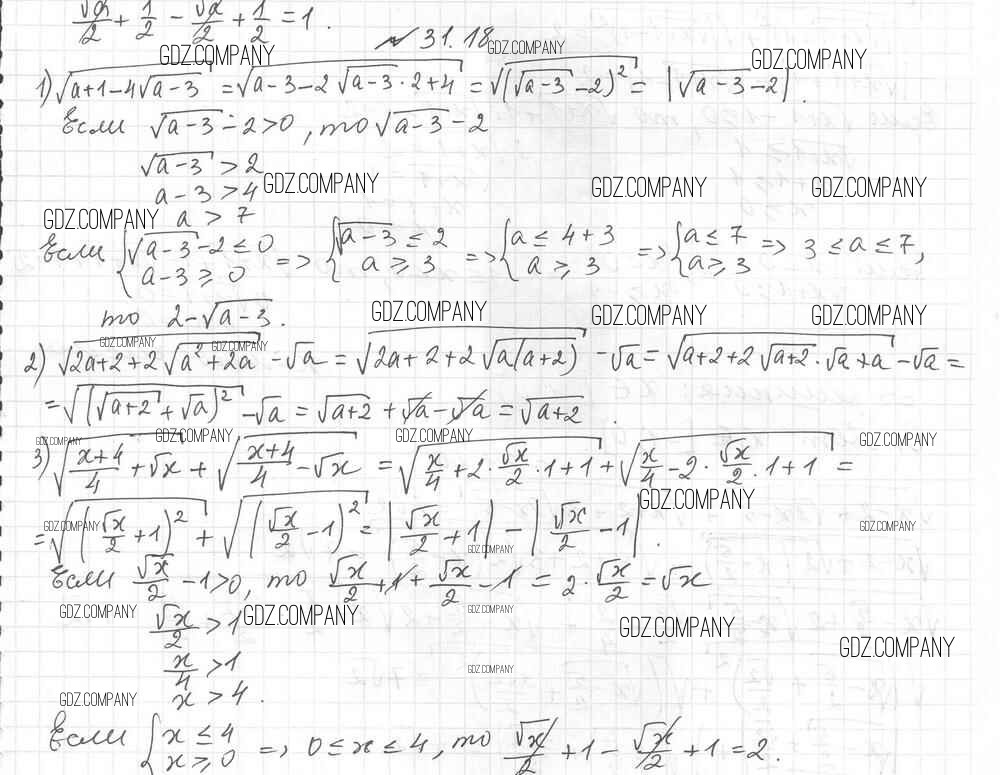 √a/2 + 1/2 - √a/2 + 1/2 = 1.
№ 31.18 GDZ.COMPANY
GDZ.COMPANY GDZ.COMPANY
1) √(a+1-4√(a-3)) = √(a-3-2√(a-3)·2+4) = √((√(a-3)-2)²) = |√(a-3)-2|.
Если √(a-3)-2>0, то √(a-3)-2
√(a-3) > 2
a-3 > 4 GDZ.COMPANY GDZ.COMPANY GDZ.COMPANY
GDZ.COMPANY a > 7
Если {√(a-3)-2 ≤ 0 => {√(a-3) ≤ 2 => {a ≤ 4+3 => {a ≤ 7 => 3 ≤ a ≤ 7,
{a-3 ≥ 0 {a ≥ 3 {a ≥ 3 {a ≥ 3
то 2-√(a-3). GDZ.COMPANY GDZ.COMPANY GDZ.COMPANY
GDZ.COMPANY GDZ.COMPANY
2) √(2a+2+2√(a²+2a)) - √a = √(2a+2+2√(a(a+2))) - √a = √(a+2+2√(a+2)·√a+a) - √a =
= √((√(a+2)+√a)²) - √a = √(a+2) + √a - √a = √(a+2).
GDZ.COMPANY GDZ.COMPANY GDZ.COMPANY GDZ.COMPANY
3) √((x+4)/4 + √x) + √((x+4)/4 - √x) = √(x/4 + 2·√x/2·1+1) + √(x/4 - 2·√x/2·1+1) =
GDZ.COMPANY
GDZ.COMPANY GDZ.COMPANY
= √((√x/2+1)²) + √((√x/2-1)²) = |√x/2+1| - |√x/2-1|.
GDZ.COMPANY
Если √x/2 - 1>0, то √x/2 + 1 + √x/2 - 1 = 2·√x/2 = √x
GDZ.COMPANY GDZ.COMPANY GDZ.COMPANY GDZ.COMPANY
√x/2 > 1
GDZ.COMPANY
x/4 > 1 GDZ.COMPANY
GDZ.COMPANY x > 4.
Если {x ≤ 4 => 0 ≤ x ≤ 4, то √x/2 + 1 - √x/2 + 1 = 2.
{x ≥ 0